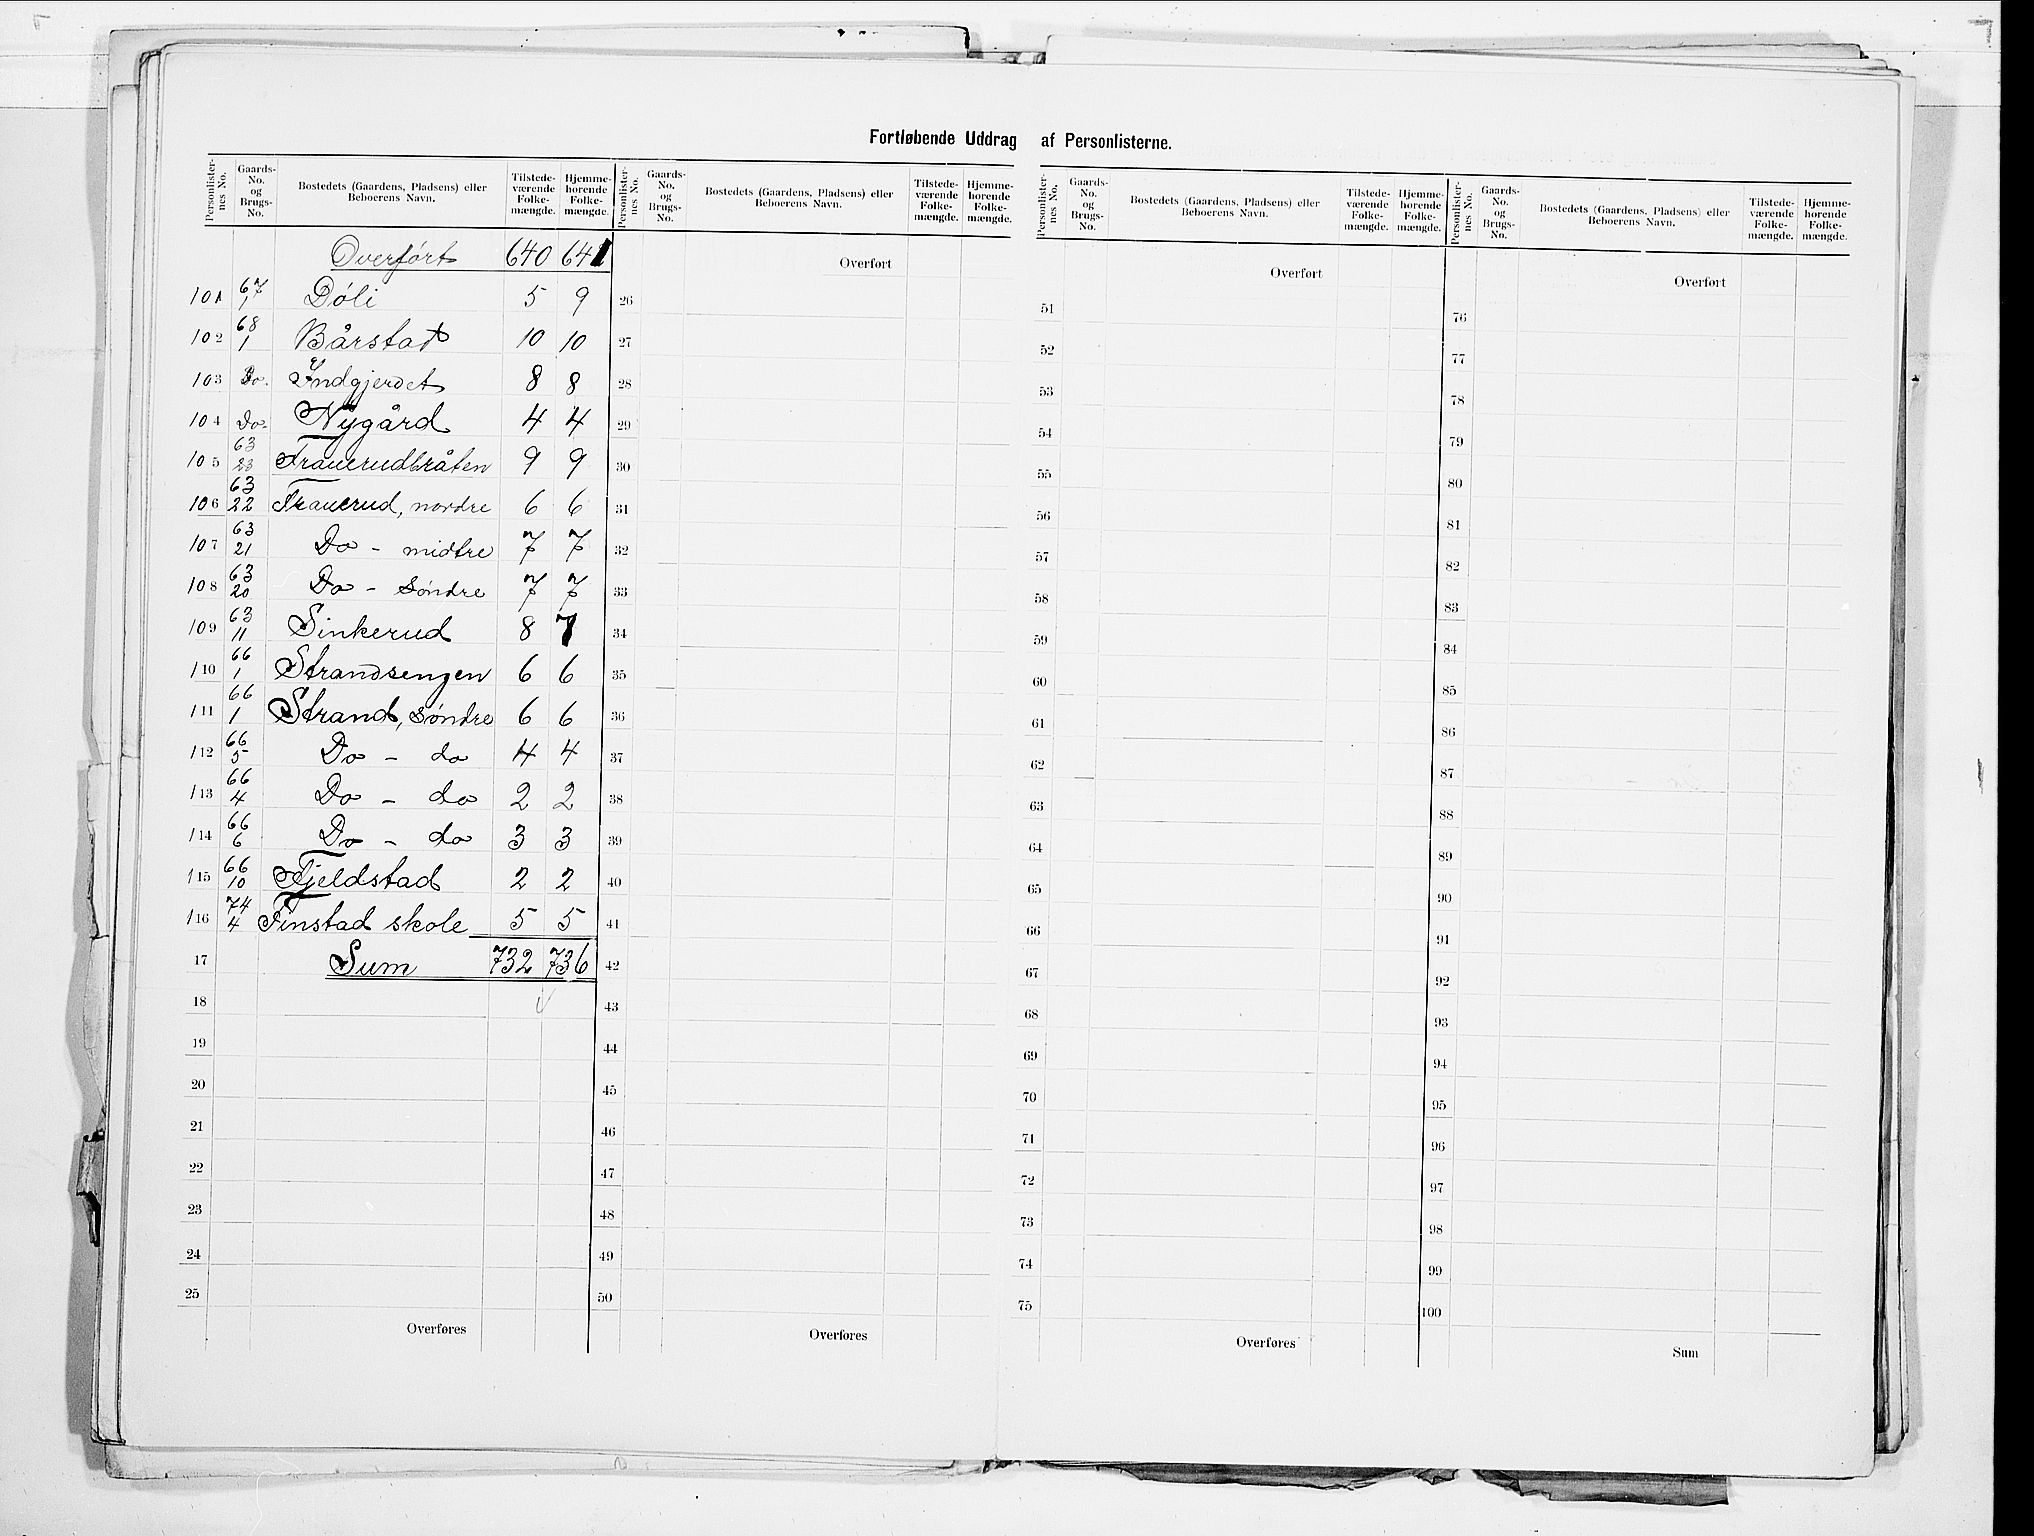 Fortløbende Uddrag af Personlisterne.
Personlister-nes No. | Gaards-No. og Brugs-No. | Bostedets (Gaardens, Pladsens) eller Beboerens Navn. | Tilstede-værende Folke-mængde. | Hjemme-hørende Folke-mængde.
Overført 640 641
101 67/1 Døli 5 9
102 68/1 Bårstad 10 10
103 Do. Indgjerdet 8 8
104 Do. Nygård 4 4
105 63/23 Trauerudbråten 9 9
106 63/22 Trauerud, nordre 6 6
107 63/21 Do - midtre 7 7
108 63/20 Do - søndre 7 7
109 63/11 Sinkerud 8 7
110 66/1 Strandsengen 6 6
111 66/1 Strand, søndre 6 6
112 66/5 Do - do 4 4
113 66/4 Do - do 2 2
114 66/6 Do - do 3 3
115 66/10 Fjeldstad 2 2
116 74/4 Finstad skole 5 5
17 Sum 732 736
18
19
20
21
22
23
24
25
Overføres
Personlister-nes No. | Gaards-No. og Brugs-No. | Bostedets (Gaardens, Pladsens) eller Beboerens Navn. | Tilstede-værende Folke-mængde. | Hjemme-hørende Folke-mængde.
Overført
26
27
28
29
30
31
32
33
34
35
36
37
38
39
40
41
42
43
44
45
46
47
48
49
50
Overføres
Personlister-nes No. | Gaards-No. og Brugs-No. | Bostedets (Gaardens, Pladsens) eller Beboerens Navn. | Tilstede-værende Folke-mængde. | Hjemme-hørende Folke-mængde.
Overført
51
52
53
54
55
56
57
58
59
60
61
62
63
64
65
66
67
68
69
70
71
72
73
74
75
Overføres
Personlister-nes No. | Gaards-No. og Brugs-No. | Bostedets (Gaardens, Pladsens) eller Beboerens Navn. | Tilstede-værende Folke-mængde. | Hjemme-hørende Folke-mængde.
Overført
76
77
78
79
80
81
82
83
84
85
86
87
88
89
90
91
92
93
94
95
96
97
98
99
100
Sum